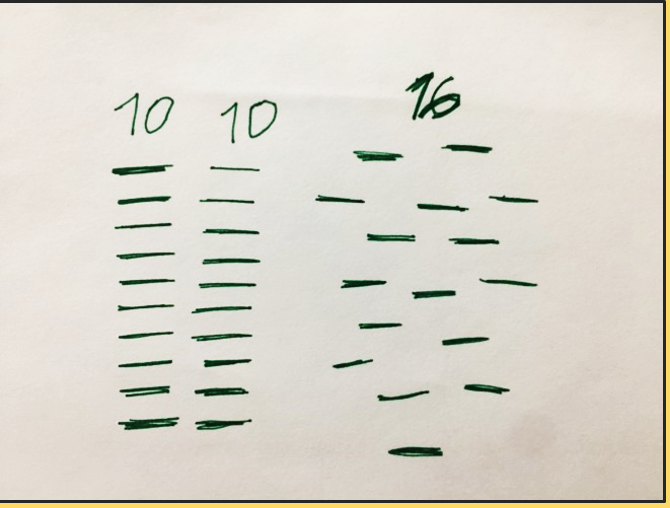 10 10 16